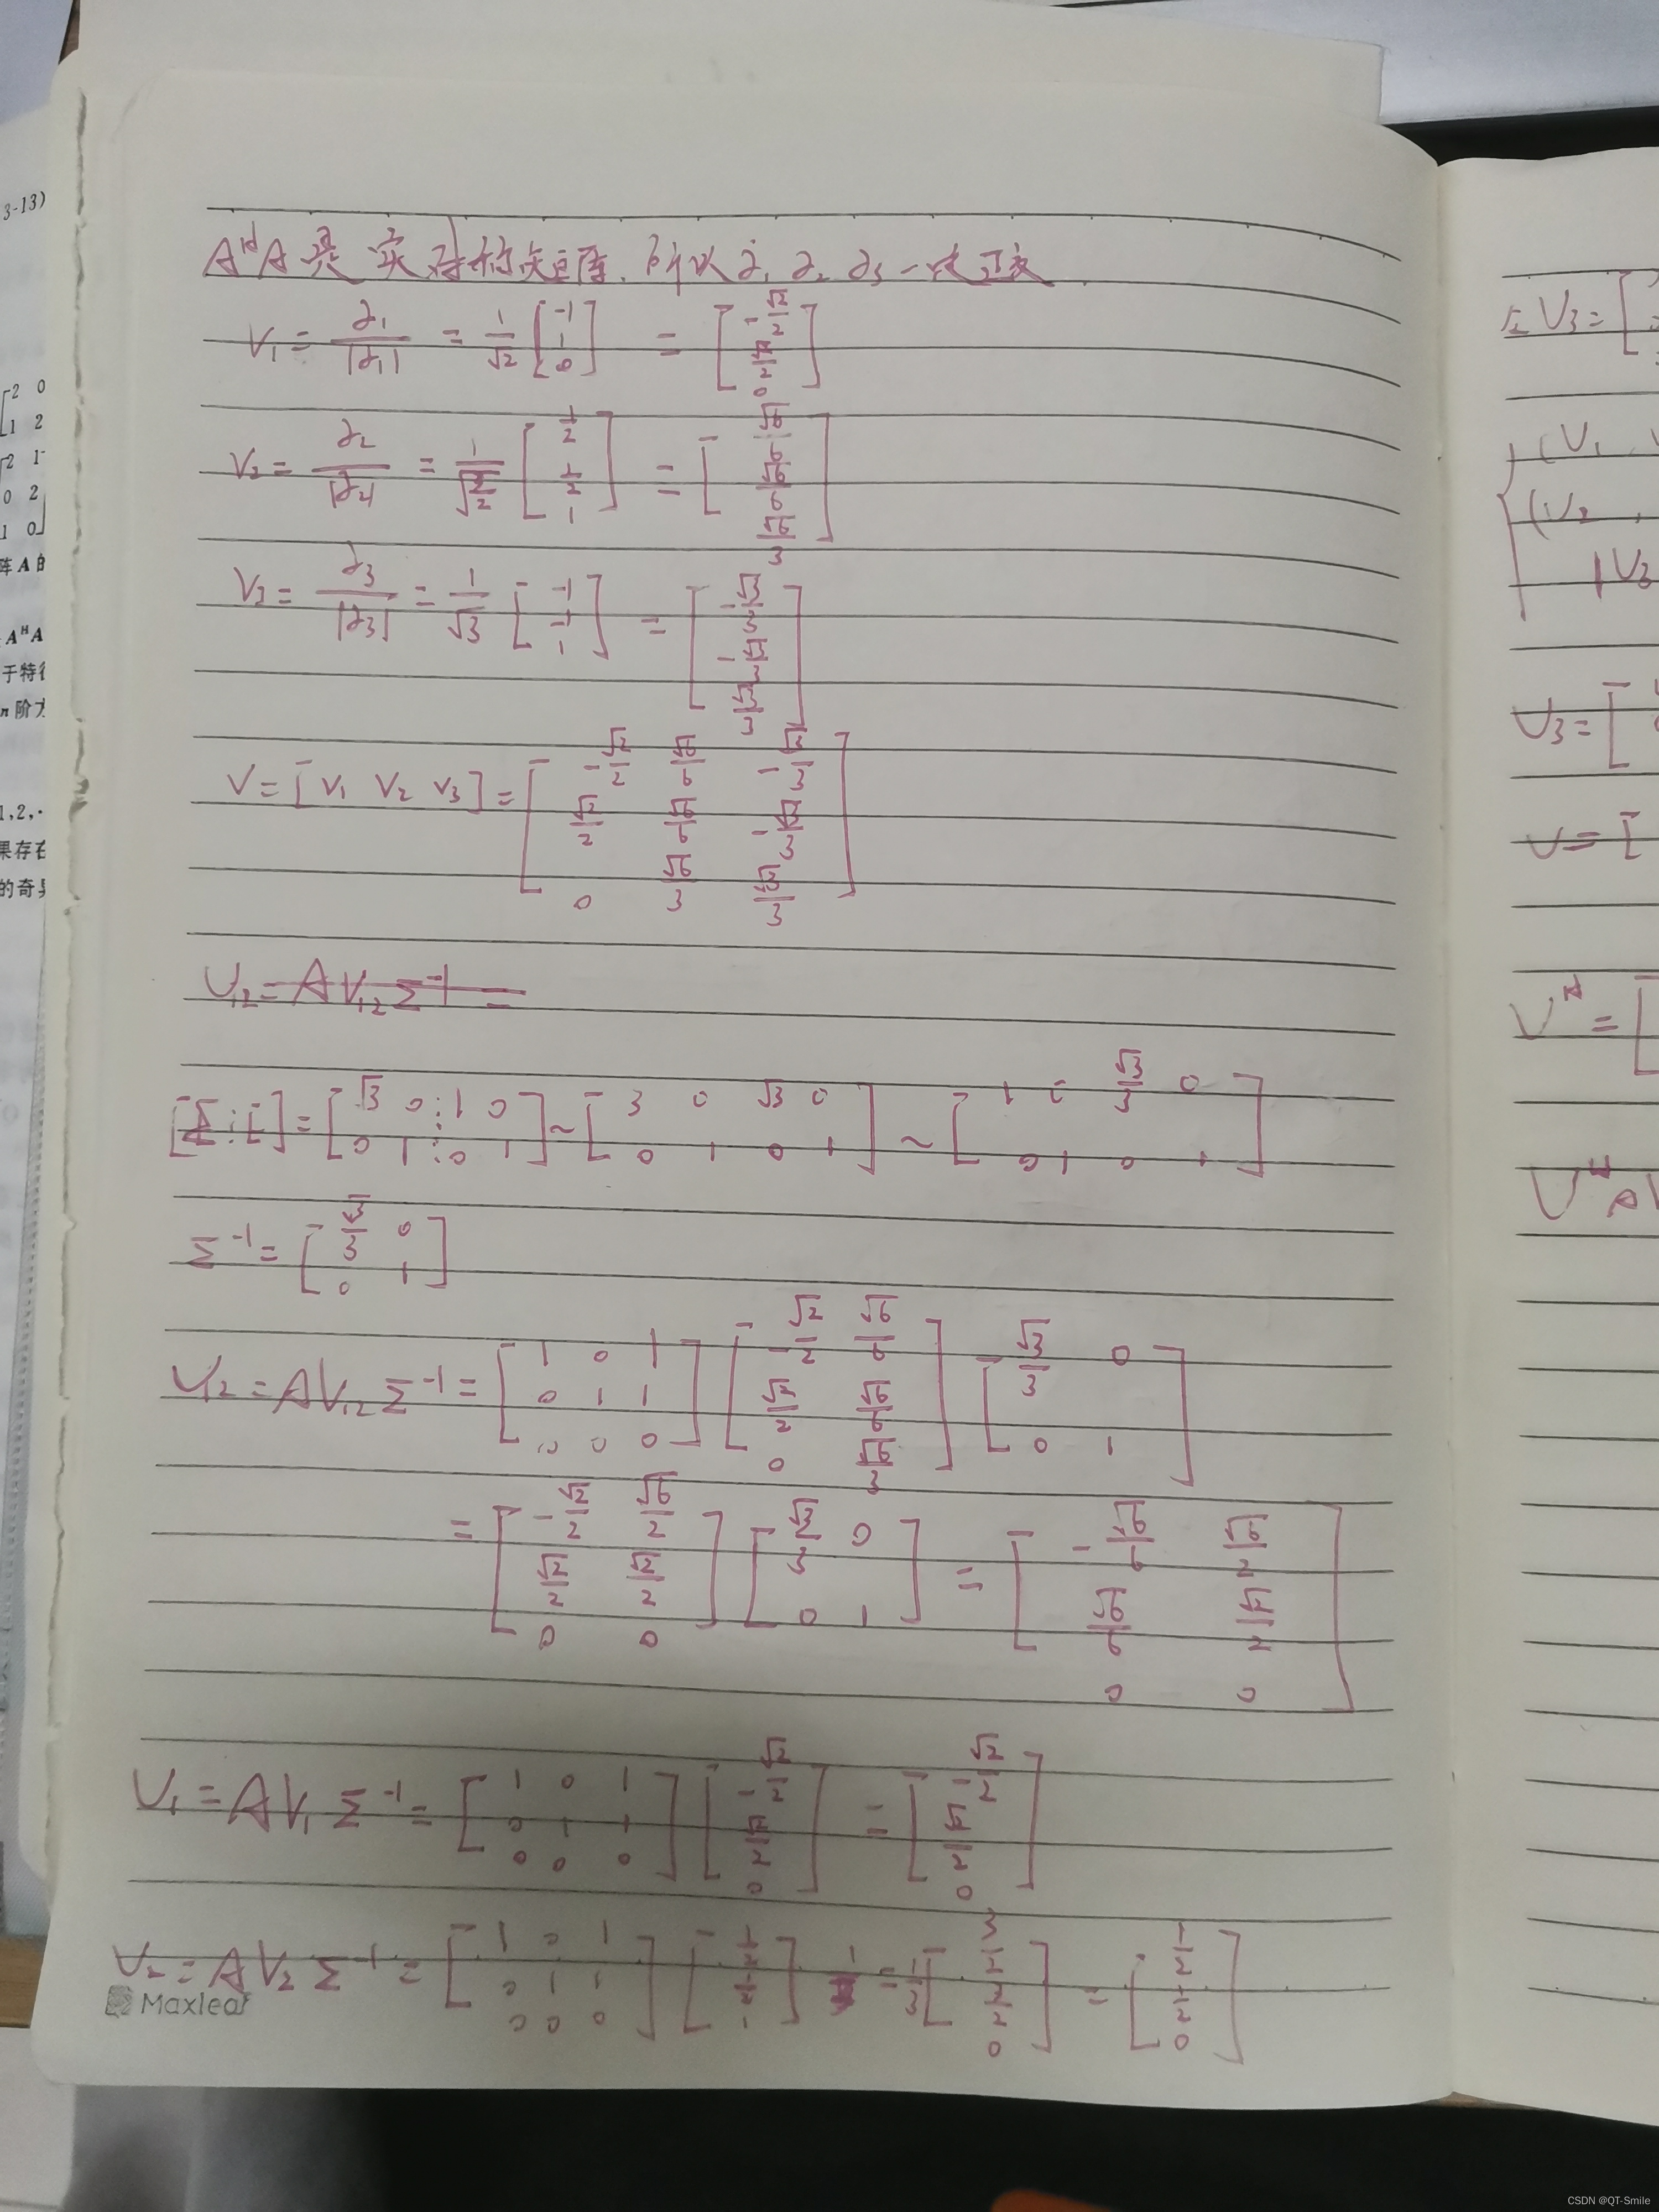 A^H A 是实对称矩阵. 所以 α₁ α₂ α₃ 一定正交
V₁ = α₁/|α₁| = 1/√2 [-1; 1; 0] = [-√2/2; √2/2; 0]
V₂ = α₂/|α₂| = [1/2; 1/2; 1] = [√6/6; √6/6; √6/3]
V₃ = α₃/|α₃| = 1/√3 [-1; -1; 1] = [-√3/3; -√3/3; √3/3]
V = [V₁ V₂ V₃] = [-√2/2 √6/6 -√3/3; √2/2 √6/6 -√3/3; 0 √6/3 √3/3]
U₁₂ = A V₁₂ Σ⁻¹ =
[Σ ⋮ I] = [√3 0 ⋮ 1 0; 0 1 ⋮ 0 1] ~ [3 0 √3 0; 0 1 0 1] ~ [1 0 √3/3 0; 0 1 0 1]
Σ⁻¹ = [√3/3 0; 0 1]
U₁₂ = A V₁₂ Σ⁻¹ = [1 0 1; 0 1 1; 0 0 0] [-√2/2 √6/6; √2/2 √6/6; 0 √6/3] [√3/3 0; 0 1]
= [-√2/2 √6/2; √2/2 √2/2; 0 0] [√3/3 0; 0 1] = [-√6/6 √6/2; √6/6 √2/2; 0 0]
U₁ = A V₁ Σ⁻¹ = [1 0 1; 0 1 1; 0 0 0] [-√2/2; √2/2; 0] = [-√2/2; √2/2; 0]
U₂ = A V₂ Σ⁻¹ = [1 0 1; 0 1 1; 0 0 0] [1/2; 1/2; 1] = 1/3 [3/2; 3/2; 0] = [1/2; 1/2; 0]
Maxleaf
3-13)
2 0
1 2
2 1
0 2
1 0
阵 A 的
A^H A
n 阶方
1,2,·
果存在
V₃ = [
(V₁
(V₂ ,
|V₃
U₃ = [
U = [
U^H =
U^H A V
CSDN @QT-Smile